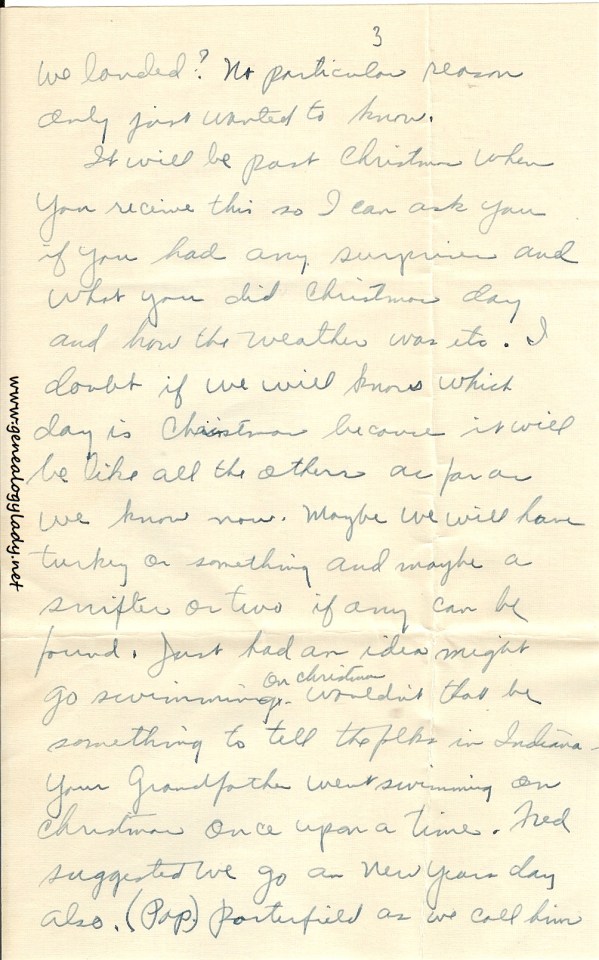 3
we landed? No particular reason
only just wanted to know.
It will be past Christmas when
you receive this so I can ask you
if you had any surprises and
what you did Christmas day
and how the weather was etc. I
doubt if we will know which
day is Christmas because it will
be like all the others as far as
we know now. Maybe we will have
turkey or something and maybe a
snifter or two if any can be
found. Just had an idea might
on christmas
go swimming. Wouldn't that be
something to tell the folks in Indiana-
Your Grandfather went swimming on
Christmas once upon a time. Fred
suggested we go on New Years day
also. (Pop) Porterfield as we call him
www.genealogylady.net